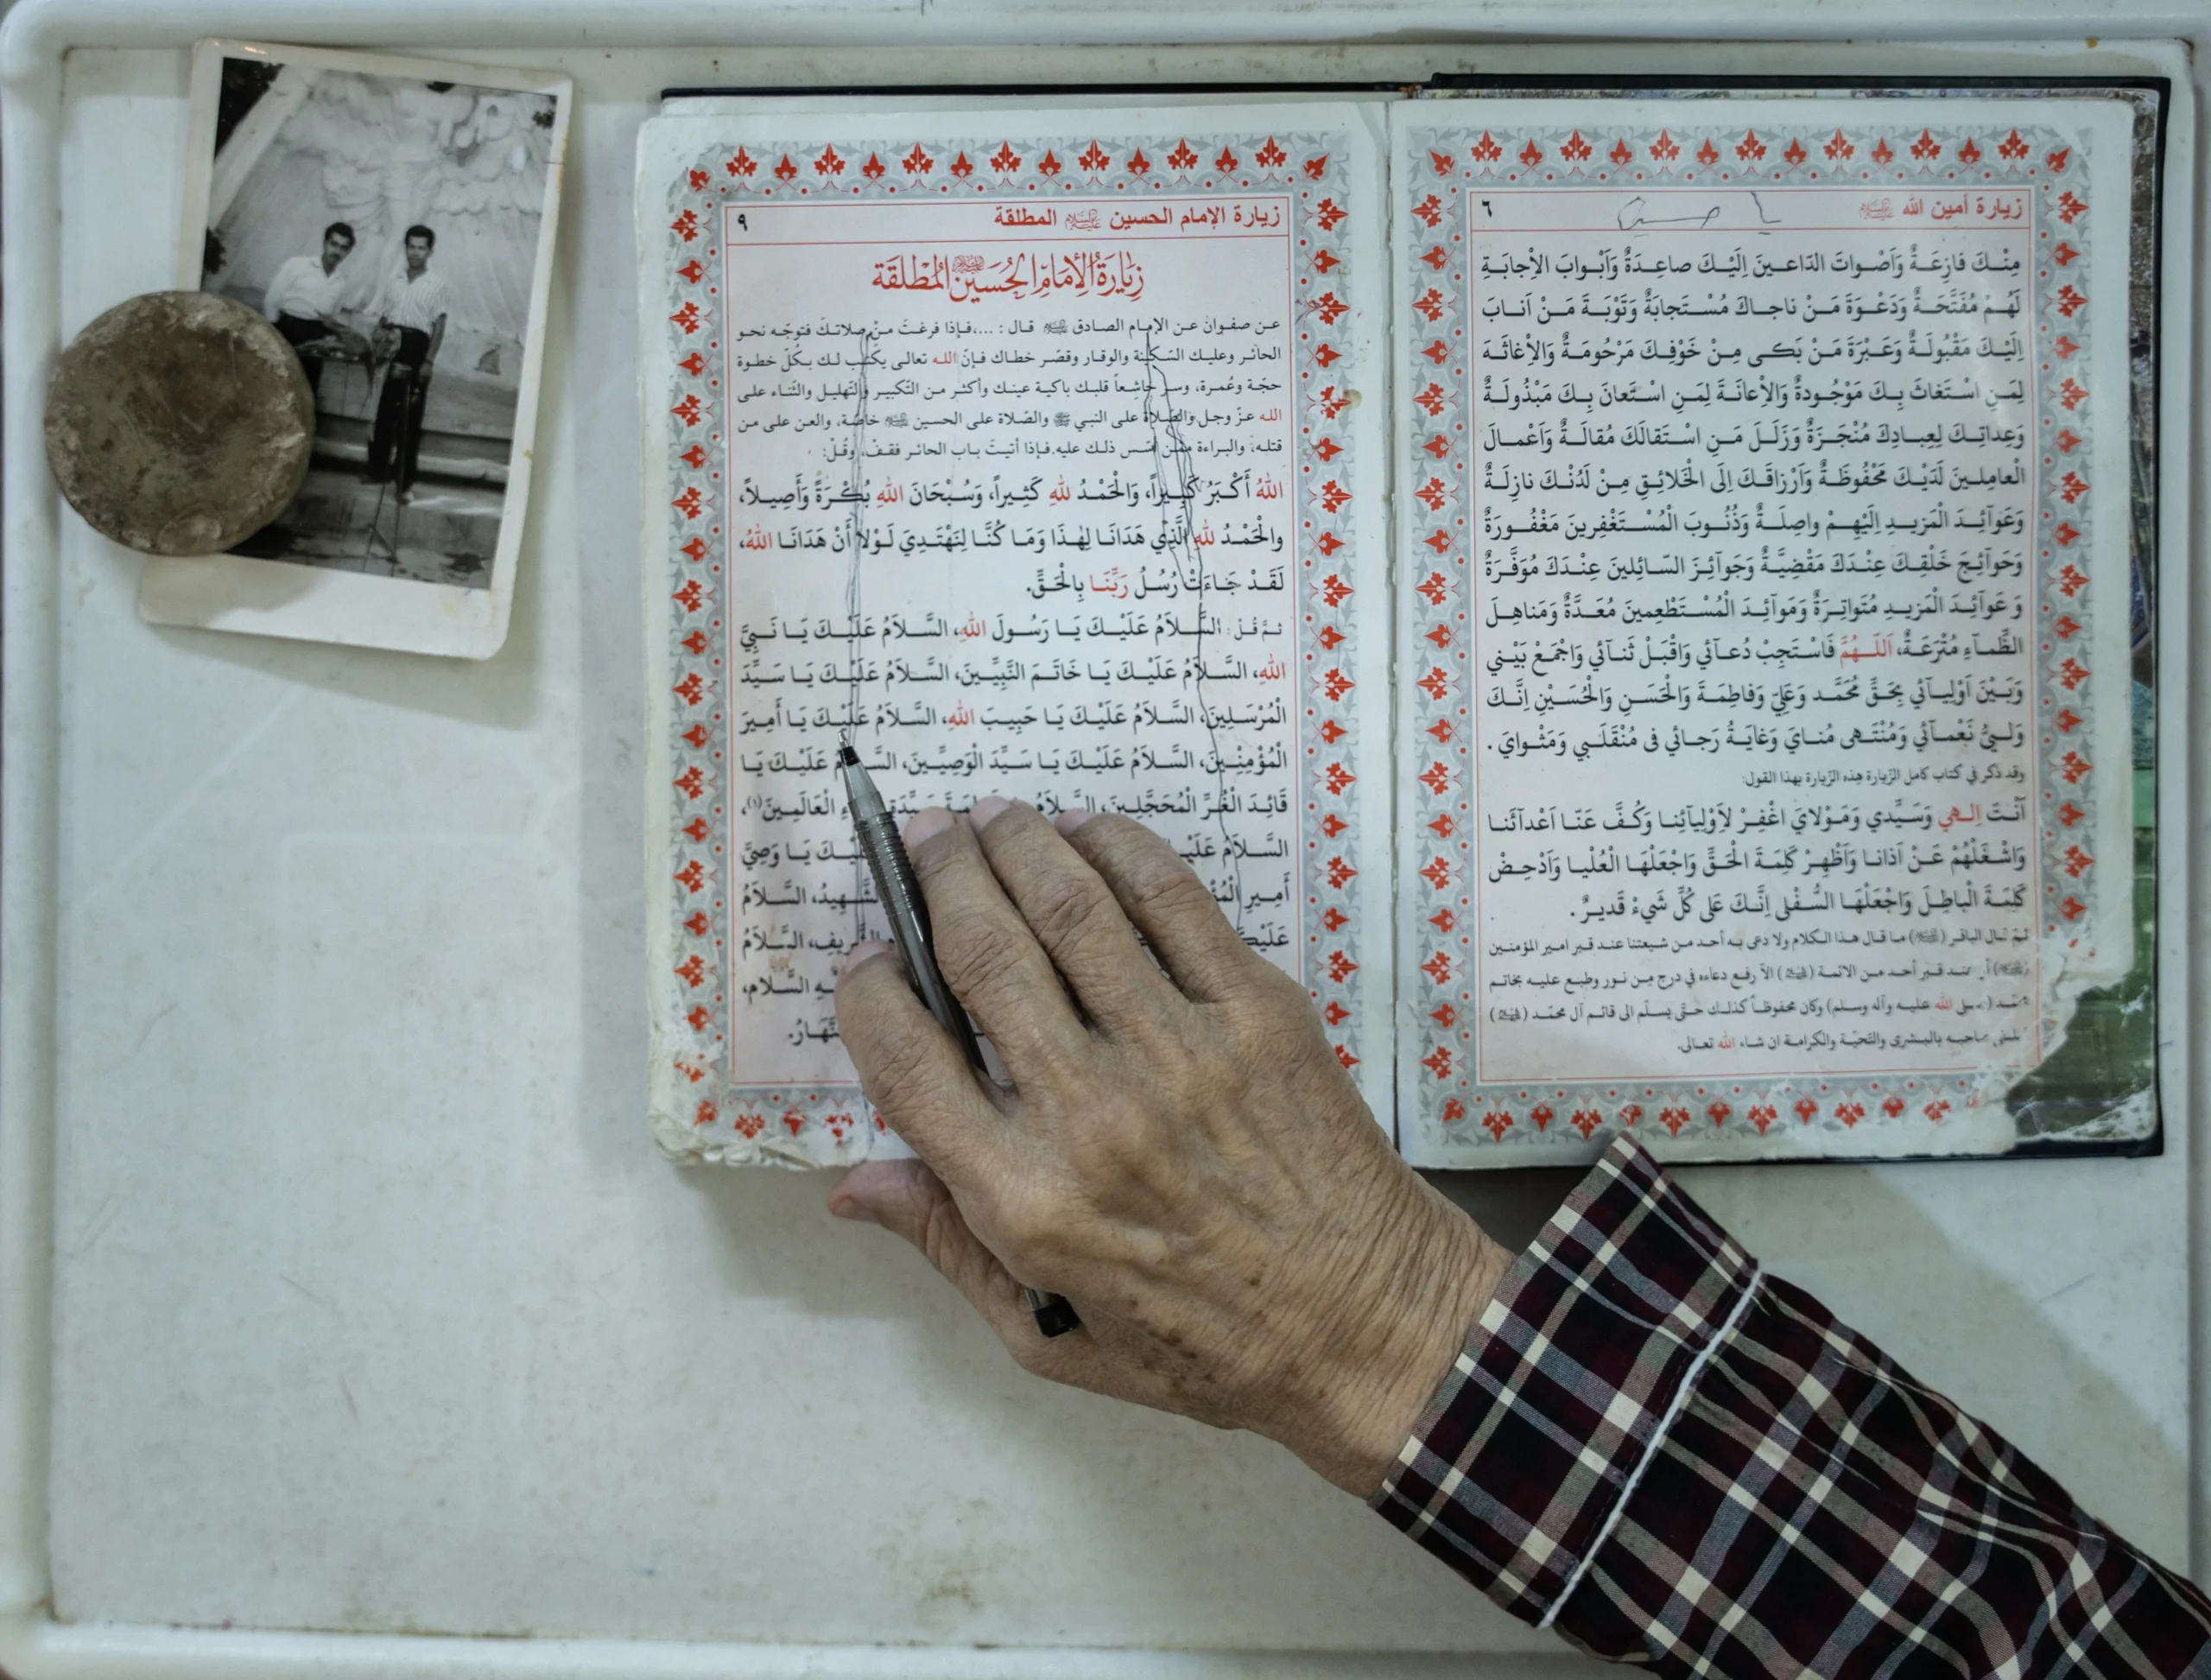 زيارة أمين الله عليه السلام ٦
يا حسين
مِنْكَ فازِعَةٌ وَاَصْواتَ الدّاعينَ اِلَيْكَ صاعِدَةٌ وَاَبْوابَ الاِْجابَةِ
لَهُمْ مُفَتَّحَةٌ وَدَعْوَةَ مَنْ ناجاكَ مُسْتَجابَةٌ وَتَوْبَةَ مَنْ اَنابَ
اِلَيْكَ مَقْبُولَةٌ وَعَبْرَةَ مَنْ بَكى مِنْ خَوْفِكَ مَرْحُومَةٌ وَالاِْغاثَةَ
لِمَنِ اسْتَغاثَ بِكَ مَوْجُودةٌ وَالاِْعانَةَ لِمَنِ اسْتَعانَ بِكَ مَبْذُولَةٌ
وَعِداتِكَ لِعِبادِكَ مُنْجَزَةٌ وَزَلَلَ مَنِ اسْتَقالَكَ مُقالَةٌ وَاَعْمالَ
الْعامِلينَ لَدَيْكَ مَحْفُوظَةٌ وَاَرْزاقَكَ اِلَى الْخَلائِقِ مِنْ لَدُنْكَ نازِلَةٌ
وَعَوآئِدَ الْمَزيدِ اِلَيْهِمْ واصِلَةٌ وَذُنُوبَ الْمُسْتَغْفِرينَ مَغْفُورَةٌ
وَحَوآئِجَ خَلْقِكَ عِنْدَكَ مَقْضِيَّةٌ وَجَوآئِزَ السّائِلينَ عِنْدَكَ مُوَفَّرَةٌ
وَعَوآئِدَ الْمَزيدِ مُتَواتِرَةٌ وَمَوآئِدَ الْمُسْتَطْعِمينَ مُعَدَّةٌ وَمَناهِلَ
الظِّمآءِ مُتْرَعَةٌ، اَللّهُمَّ فَاسْتَجِبْ دُعآئي وَاقْبَلْ ثَنآئي وَاجْمَعْ بَيْني
وَبَيْنَ اَوْلِيآئي بِحَقِّ مُحَمَّد وَعَلِيّ وَفاطِمَةَ وَالْحَسَنِ وَالْحُسَيْنِ اِنَّكَ
وَلِيُّ نَعْمآئي وَمُنْتَهى مُنايَ وَغايَةُ رَجائي فى مُنْقَلَبي وَمَثْوايَ .
وقد ذكر في كتاب كامل الزّيارة هذه الزّيارة بهذا القول:
اَنْتَ اِلهي وَسَيِّدي وَمَوْلايَ اغْفِرْ لاَِوْلِيآئِنا وَكُفَّ عَنّا اَعْدآئَنا
وَاشْغَلْهُمْ عَنْ اَذانا وَاَظْهِرْ كَلِمَةَ الْحَقِّ وَاجْعَلْهَا الْعُلْيا وَاَدْحِضْ
كَلِمَةَ الْباطِلَ وَاجْعَلْهَا السُّفْلى اِنَّكَ عَلى كُلِّ شَيءْ قَديرٌ .
ثمّ قال الباقر (عليه السلام) ما قال هذا الكلام ولا دعى به أحد من شيعتنا عند قبر امير المؤمنين
(عليه السلام) أو عند قبر أحد من الائمة (عليهم السلام) الاّ رفع دعاءه في درج مِن نور وطبع عليه بخاتم
محمّد (صلى الله عليه وآله وسلم) وكان محفوظاً كذلك حتّى يسلّم الى قائم آل محمّد (عليهم السلام)
صاحبه بالبشرى والتّحيّة والكرامة ان شاء الله تعالى.
زيارة الإمام الحسين عليه السلام المطلقة ٩
زِيَارَةُ الإِمَامِ الحُسَيْنِ المُطْلَقَة
عن صفوان عن الإمام الصادق عليه السلام قال : ...،فإذا فرغتَ منْ صلاتكَ فتوجّه نحو
الحائر وعليك السّكينة والوقار وقصّر خطاك فإنّ الله تعالى يكتُب لك بكُلّ خطوة
حجّة وعُمرة، وسر خاشعاً قلبك باكية عينك وأكثر من التّكبير والتّهليل والثّناء على
الله عزّ وجل والصّلاة على النبي ﷺ والصّلاة على الحسين عليه السلام خاصّة، والعن على من
قتله، والبراءة ممّن أسّس ذلك عليه.فإذا أتيتَ باب الحائر فقفْ، وقُلْ:
اللهُ أَكْبَرُ كَبِيراً، وَالْحَمْدُ للهِ كَثِيراً، وَسُبْحَانَ اللهِ بُكْرَةً وَأَصِيلاً،
والْحَمْدُ للهِ الَّذِي هَدَانَا لِهٰذَا وَمَا كُنَّا لِنَهْتَدِيَ لَوْلا أَنْ هَدَانَا اللهُ،
لَقَدْ جَاءَتْ رُسُلُ رَبِّنَا بِالْحَقِّ.
ثمّ قُل: السَّلاَمُ عَلَيْكَ يَا رَسُولَ اللهِ، السَّلاَمُ عَلَيْكَ يَا نَبِيَّ
اللهِ، السَّلاَمُ عَلَيْكَ يَا خَاتَمَ النَّبِيِّينَ، السَّلاَمُ عَلَيْكَ يَا سَيِّدَ
الْمُرْسَلِينَ، السَّلاَمُ عَلَيْكَ يَا حَبِيبَ اللهِ، السَّلاَمُ عَلَيْكَ يَا أَمِيرَ
الْمُؤْمِنِينَ، السَّلاَمُ عَلَيْكَ يَا سَيِّدَ الْوَصِيِّينَ، السَّلاَمُ عَلَيْكَ يَا
قَائِدَ الْغُرِّ الْمُحَجَّلِينَ، السَّلاَمُ الْعَالَمِينَ(١)،
السَّلاَمُ يَا وَصِيَّ
أَمِيرِ الشَّهِيدُ، السَّلاَمُ
السَّلاَمُ
السَّلام،